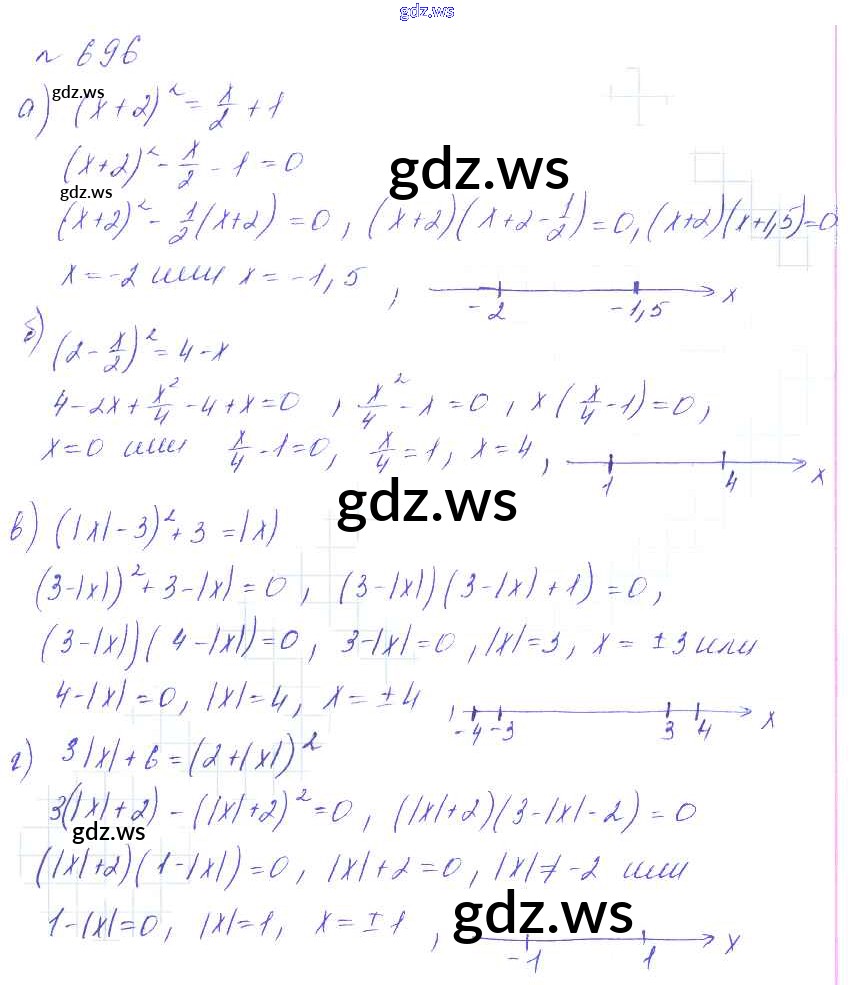 gdz.ws
n 696
а) (x+2)² = x/2 + 1
gdz.ws
(x+2)² - x/2 - 1 = 0
gdz.ws
gdz.ws
(x+2)² - 1/2(x+2) = 0, (x+2)(x+2-1/2) = 0, (x+2)(x+1,5)=0
x = -2 или x = -1,5, -2 -1,5 x
б) (2 - x/2)² = 4-x
4-2x+x²/4-4+x=0, x²/4 - x = 0, x(x/4-1)=0,
x=0 или x/4-1=0, x/4=1, x=4, 1 4 x
gdz.ws
в) (|x|-3)²+3=|x)
(3-|x|)²+3-|x|=0, (3-|x|)(3-|x|+1)=0,
(3-|x|)(4-|x|)=0, 3-|x|=0, |x|=3, x = ±3 или
4-|x|=0, |x|=4, x=±4 -4 -3 3 4 x
г) 3|x|+6=(2+|x|)²
3(|x|+2)-(|x|+2)²=0, (|x|+2)(3-|x|-2)=0
gdz.ws
(|x|+2)(1-|x|)=0, |x|+2=0, |x|≠-2 или
gdz.ws
1-|x|=0, |x|=1, x=±1, -1 1 x